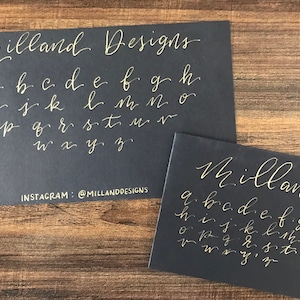 Milland Designs
a b c d e f g h
i j k l m n o
p q r s t u v
w x y z
INSTAGRAM : @MILLANDDESIGNS
Millan
a b c d e f
h i j k l m
o p q r s t
v w x y z